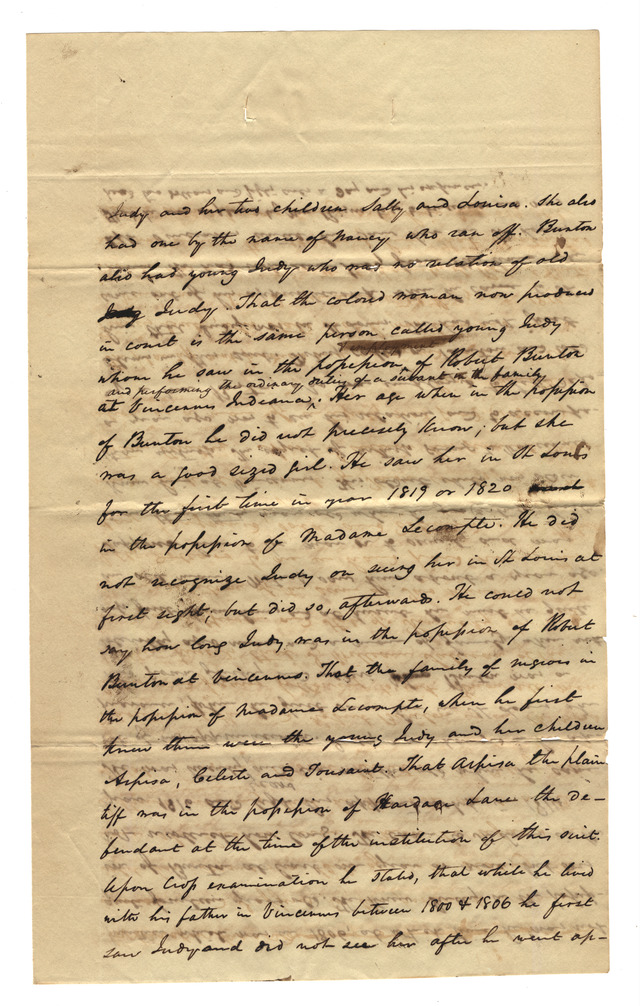 Judy and her two children Sally and Louisa. She also
had one by the name of Nancy who ran off. Bunton
also had young Judy who was no relation of old
Judy. That the colored woman now produced
in court is the same person called young Judy
whom he saw in the possession of Robert Bunton
and performing the ordinary duties of a servant in the family
at Vincennes Indeana ^. Her age when in the possession
of Bunton he did not precisely know; but she
was a good sized girl. He saw her in St Louis
for the first time in year 1819 or 1820
in the possession of Madame Lecompte. He did
not recognize Judy on seeing her in St Louis at
first sight, but did so, afterwards. He could not
say how long Judy was in the possession of Robert
Bunton at Vincennes. That the family of negroes in
the possession of Madame Lecompte, when he first
knew them were the young Judy and her children
Aspisa, Celeste and Tousaint. That Aspisa the plain
tiff was in the possession of Hardage Lane the de–
fendant at the time of the institution of this suit.
Upon Cross examination he stated, that while he lived
with his father in Vincennes between 1800 & 1806 he first
saw Judy and did not see her after he went ap–